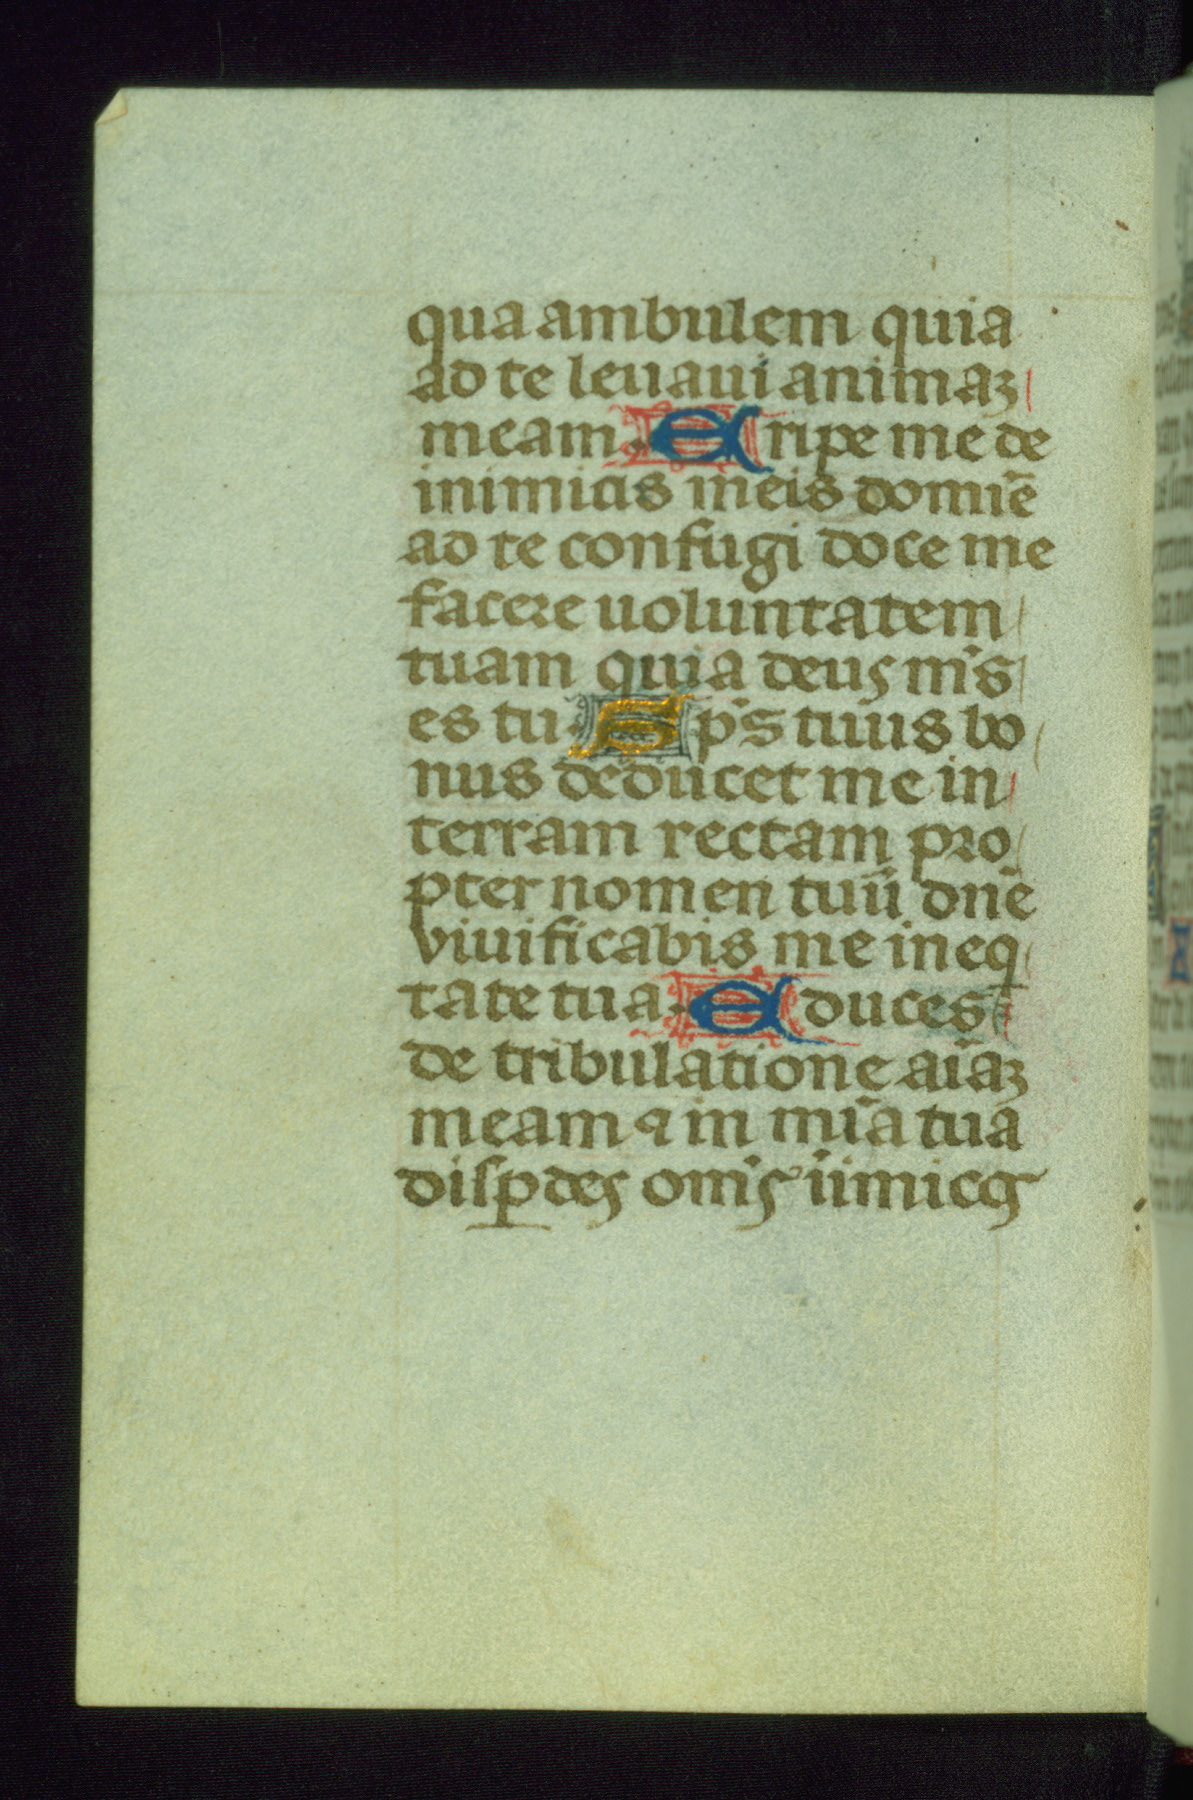 qua ambulem quia
ad te leuaui animaʒ
meam. Eripe me de
inimicis meis domiē
ad te confugi doce me
facere uoluntatem
tuam quia deus m's
es tu. Sp's tuus bo
nus deducet me in
terram rectam pro
pter nomen tuū dn̄e
viuificabis me in eq
tate tua. Educes
de tribulatione aīaʒ
meam ⁊ in mīa tua
disꝑdes om's